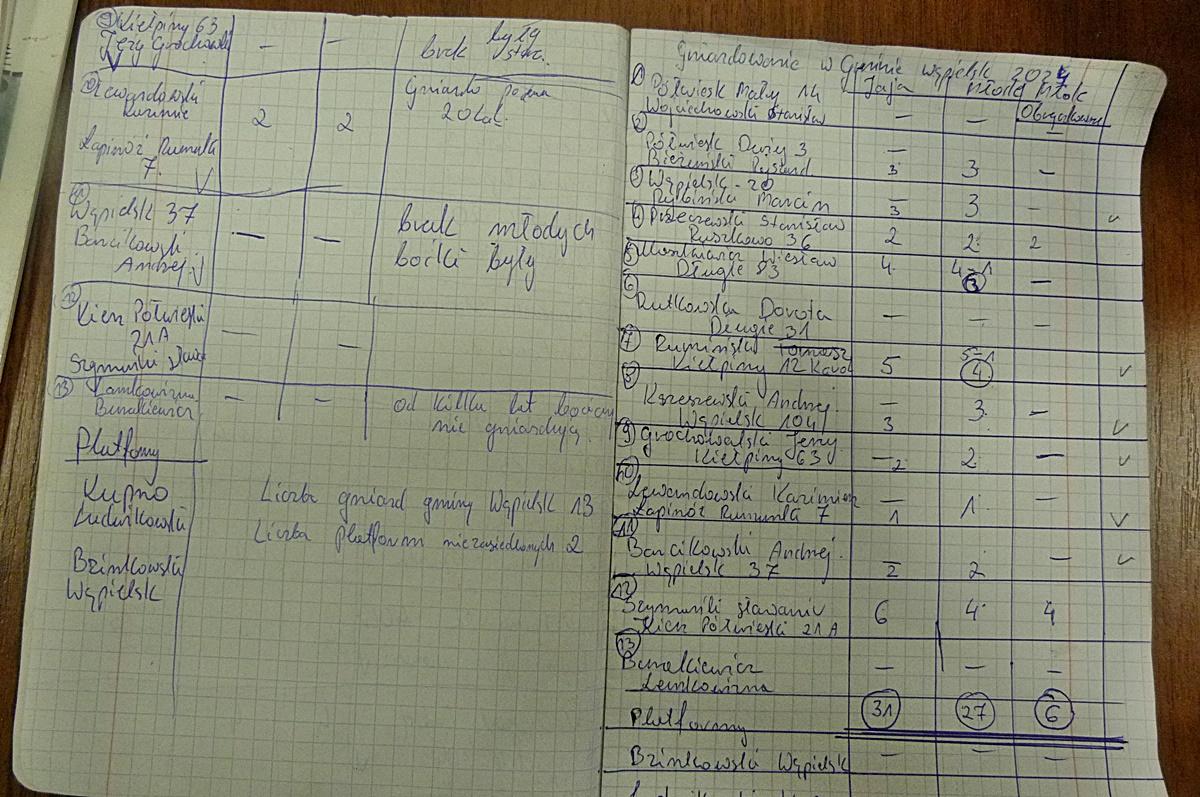 9 Kiełpiny 63
Jerzy Grochowski
— — brak były
10 Lewandowski
2 2
Gniazdo
20 lat
Łapinóż Rumunka
7.
11
Wąpielsk 37
Barcikowski
Andrzej
— — brak młodych
boćki były
12
21A
— —
13
— — od kilku lat bociany
nie gniazdują
Platformy
Kupno
Ludwikowski
Liczba gniazd gminy Wąpielsk 13
Liczba platform niezasiedlonych 2
Brzinkowski
Wąpielsk
Gniazdowanie w Gminie Wąpielsk
Jaja młode
1 Półwiesk Mały 14
Wojciechowski Stanisław — — —
2
Półwiesk Duży 3 —
3 3 —
3 Wąpielsk - 20 —
Rybiński Marcin 3 3 —
4 Stanisław
Ruszkowo 36 2 2 2
5 Wiesław 4 4-1
Długie 83 3 —
6
Rutkowska Dorota — — —
Długie 31
7 Rumiński Tomasz 5-1
Kiełpiny 12 Karol 5 4
8
Andrzej — 3 —
Wąpielsk 104 3
9 Grochowalski Jerzy
Kiełpiny 63 — 2 2 —
10
Lewandowski Kazimierz — 1 —
Łapinóż Rumunka 7 1
11
Barcikowski Andrzej —
Wąpielsk 37 2 2
12
6 4 4
21A
13
Bunalkiewicz — — —
Platformy 31 27 6
Brzinkowski Wąpielsk — — —